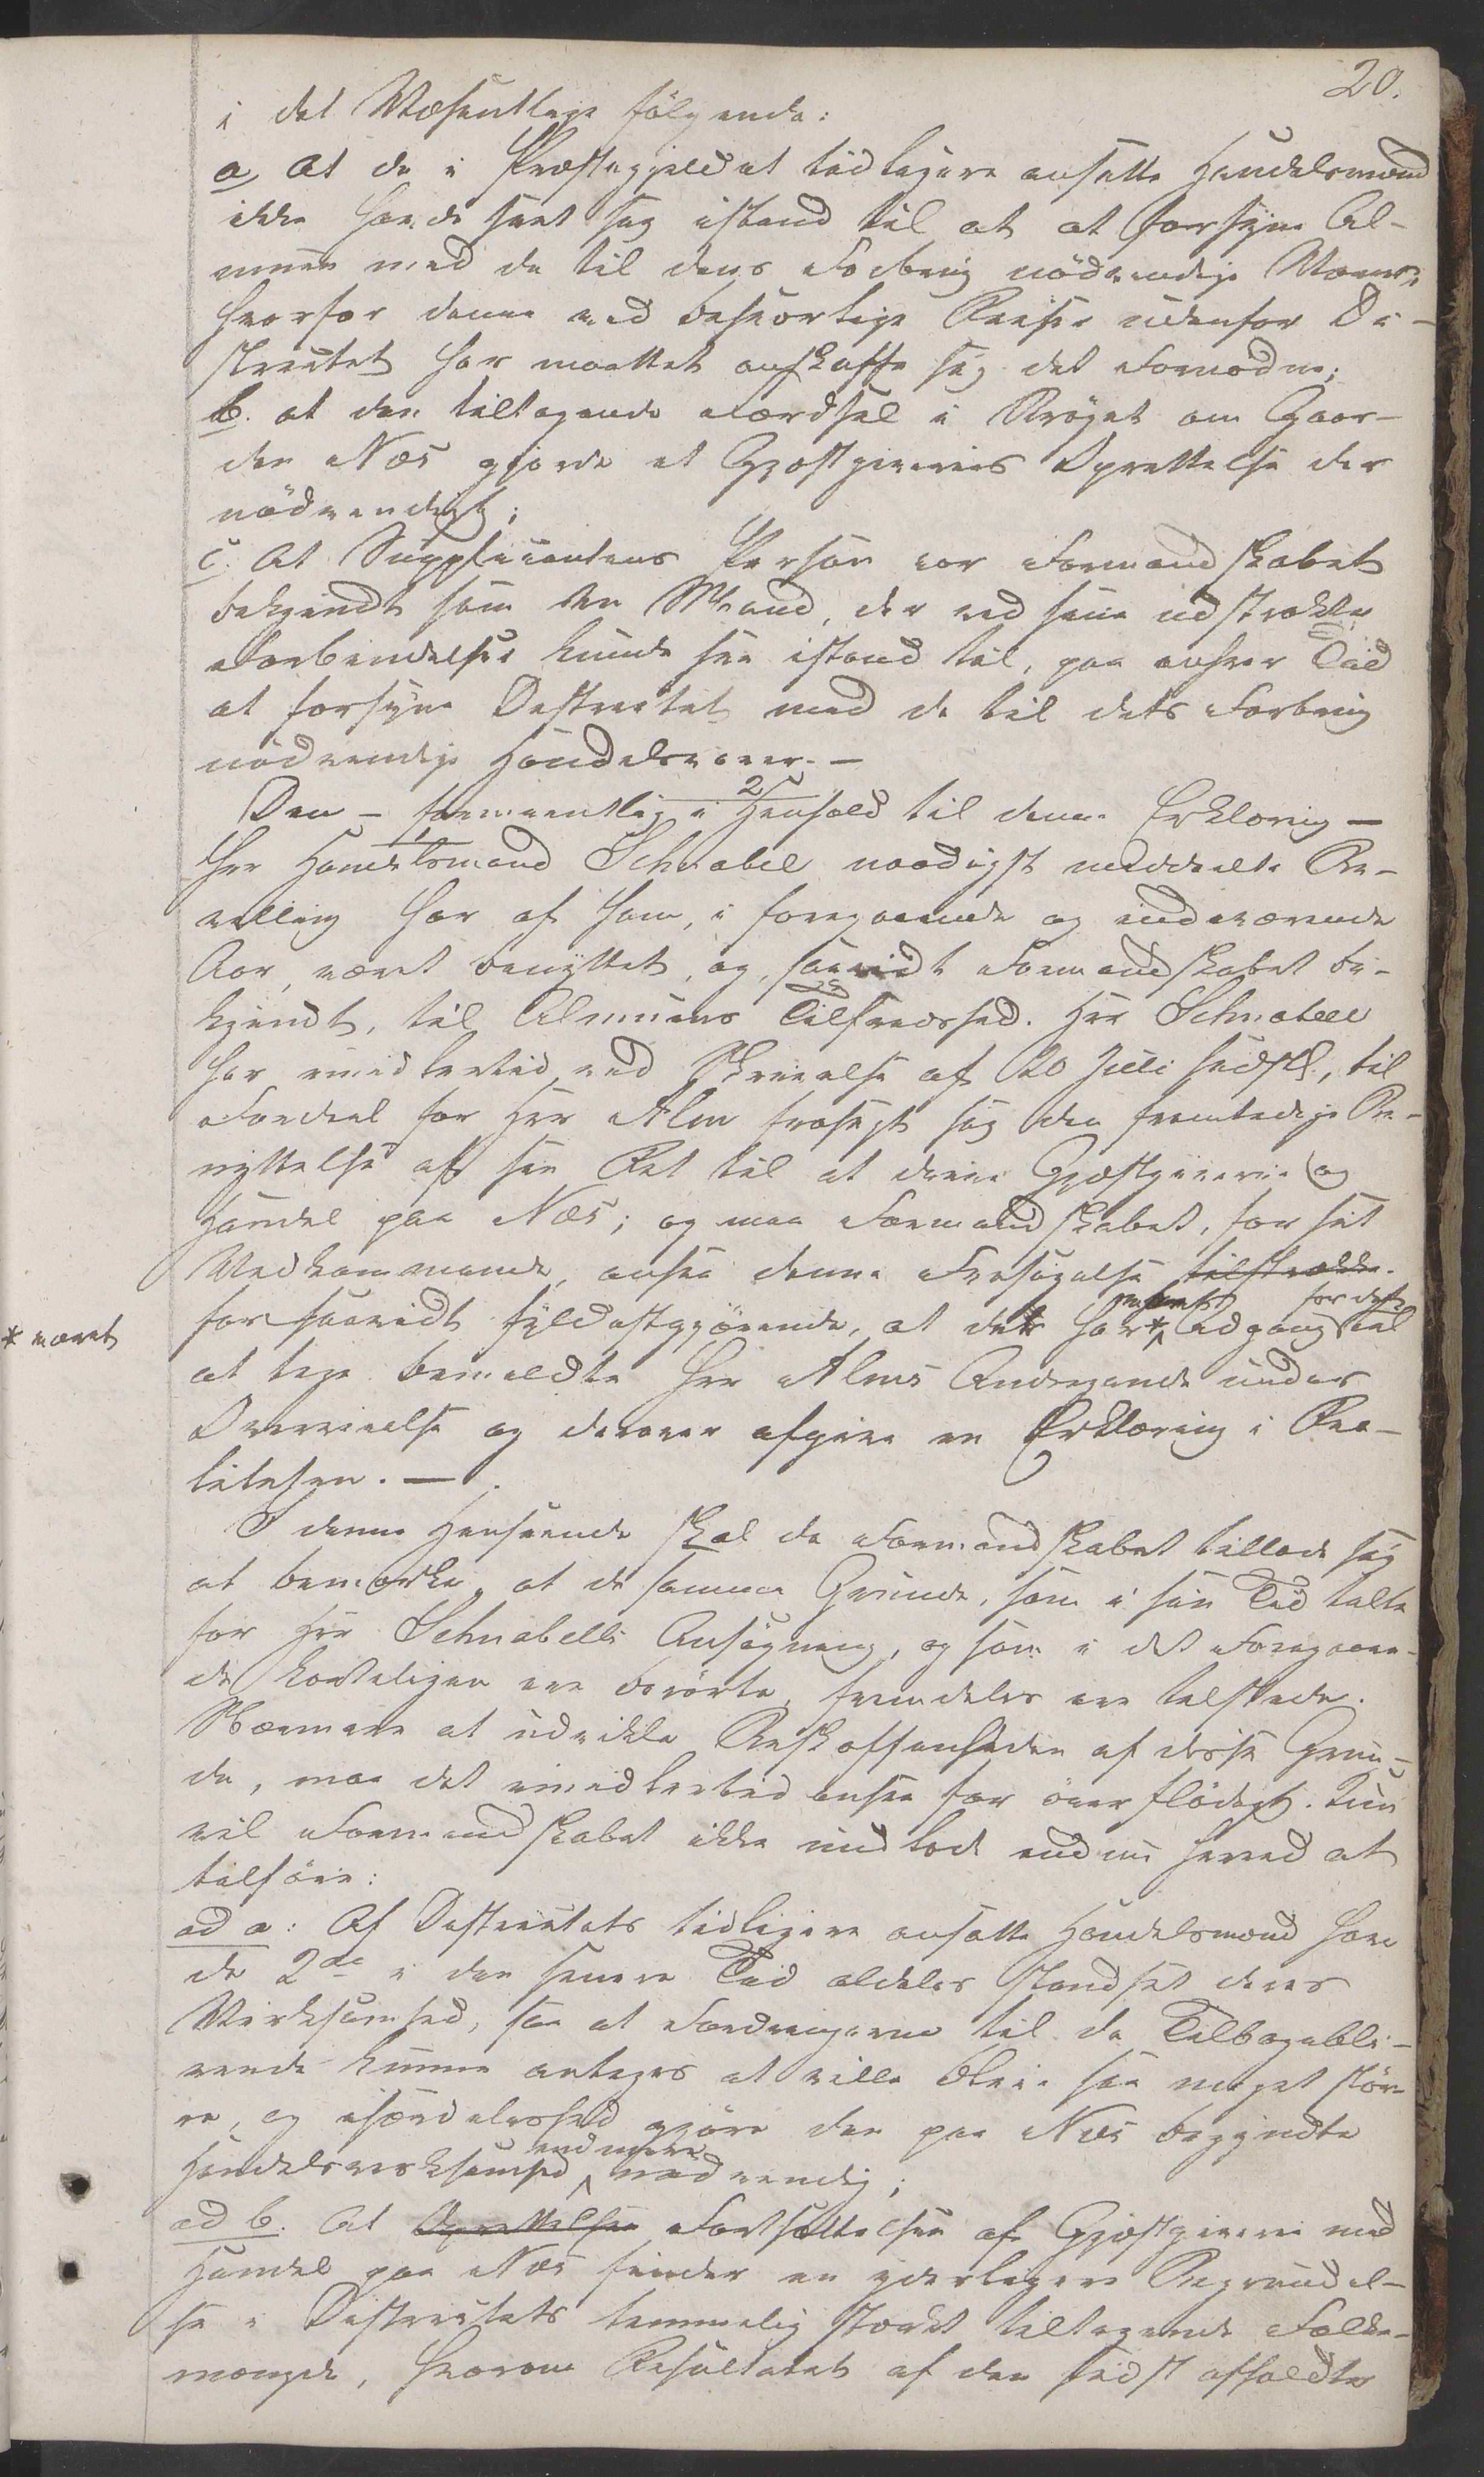 20.
i det Væsentlige følgende:
a, at de i Præstegjeldet tidligere ansatte Handelsmænd
ikke havde seet sig istand til at at forsyne Al-
muen med de til dens Forbrug nödvendige Varer,
hvorfor denne ved besværlige Reiser udenfor Di-
strictet har maattet anskaffe sig det Fornødne;
b. at den tiltagende Færdsel i Strøget om Gaar-
den Næs gjorde et Gjæstgiveries Oprettelse der
nödvendigt;
c. At Supplicantens Person var Formandskabet
bekjendt som den Mand, der ved sine udstrakte
Forbindelser kunde see istand til, paa enhver Tid
at forsyne Districtet med de til dets Forbrug
nödvendige Handelsvarer. —
Den – formeentlig i Henhold til denne Erklæring —
Hr Handelsmand Schnabel naadigst meddeelte Be-
villing har af ham, i foregaaende og indeværende
Aar, været benyttet, og, saavidt Formandskabet be-
kjendt, til Almuens Tilfredshed. Herr Schnabell
har imidlertid, ved Skrivelse af 20 Juli sidstl, til
Fordeel for Herr Alm frasagt sig den fremtidige Be-
nyttelse af sin Ret til at drive Gjæstgiverie og
Handel paa Næs; og maa Formandskabet, for sit
Vedkommende, ansee denne Frasigelse tilstrække-
for saavidt fyldestgjørende, at der har * Adgang for dette til
* været
at tage bemeldte Herr Alms Andragende under
Overveielse og derover afgive en Erklæring i Rea-
liteten. —
I denne Henseende skal da Formandskabet tillade sig
at bemærke, at de samme Grunde, som i sin Tid talte
for Herr Schnabells Ansøgning, og som i det Foregaaen-
de korteligen ere berörte, fremdeles ere tilstede.
Nærmere at udvikle Beskaffenheden af disse Grun-
de, maa det imidlertid ansee for överflödigt. Kun
vil Formandskabet ikke undlade endnu herved at
tilföie:
ad a: Af Districtets tidligere ansatte Handelsmænd have
de 2de i den senere Tid aldeles standset deres
Virksomhed, saa at Fordringerne til de Tilbagebli-
vende kunne antages at ville blive saa meget stör-
re, og isærdeleshed gjöre den paa Næs begyndte
Handelsvirksomhed end mere nödvendig;
ad b. At Oprettelsen Fortsættelsen af Gjæstgiverie med
Handel paa Næs finder en yderligere Begrundel-
se i Districtets temmelig stærkt tiltagende Folke-
mængde, hvorom Resultatet af den sidst afholdte